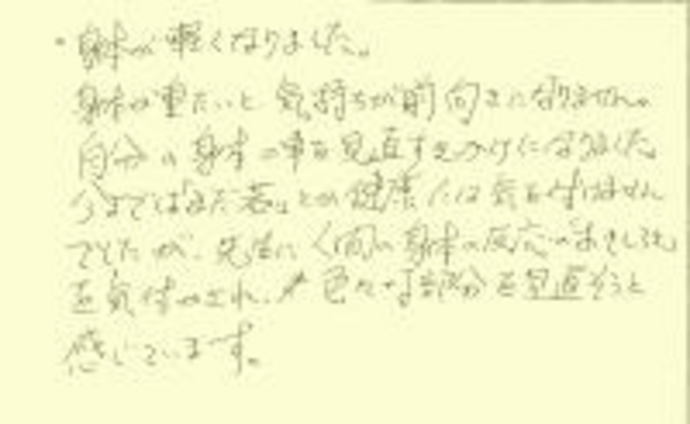 ・身体が軽くなりました。
身体が重たいと気持ちが前向きになりません。
自分の身体の事を見直すきっかけになりました。
今までは まだ若いとの健康には気を付けません
でしたが、先生に 身体の反応
を気付かされ、色々な部分を見直そうと
感じています。